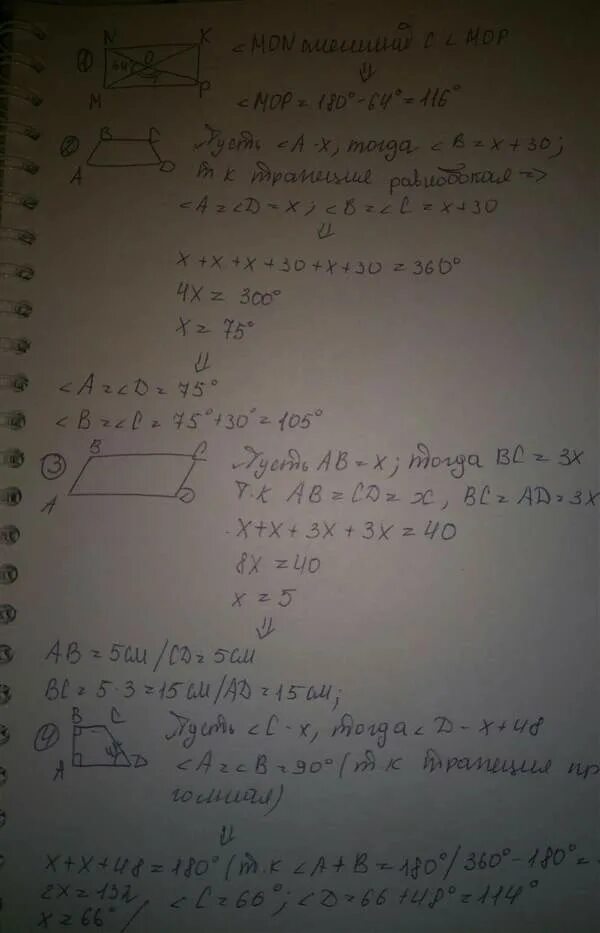 ①
N
K
64°
O
?
M
P
∠MON смежный с ∠MOP
⇓
∠MOP = 180° - 64° = 116°
②
B
C
A
D
Пусть ∠A - x, тогда ∠B = x + 30;
т к трапеция равнобокая =>
∠A = ∠D = x; ∠B = ∠C = x + 30
⇓
x + x + x + 30 + x + 30 = 360°
4x = 300°
x = 75°
⇓
∠A = ∠D = 75°
∠B = ∠C = 75° + 30° = 105°
③
B
C
A
D
Пусть AB = x; тогда BC = 3x
т.к AB = CD = x, BC = AD = 3x
x + x + 3x + 3x = 40
8x = 40
x = 5
⇓
AB = 5см / CD = 5см
BC = 5 · 3 = 15см / AD = 15см;
④
B
C
A
D
Пусть ∠C - x, тогда ∠D - x + 48
∠A = ∠B = 90° (т к трапеция пр
гольная)
⇓
x + x + 48 = 180° (т.к ∠A + B = 180° / 360° - 180° =
2x = 132
x = 66° / ∠C = 66°; ∠D = 66 + 48° = 114°